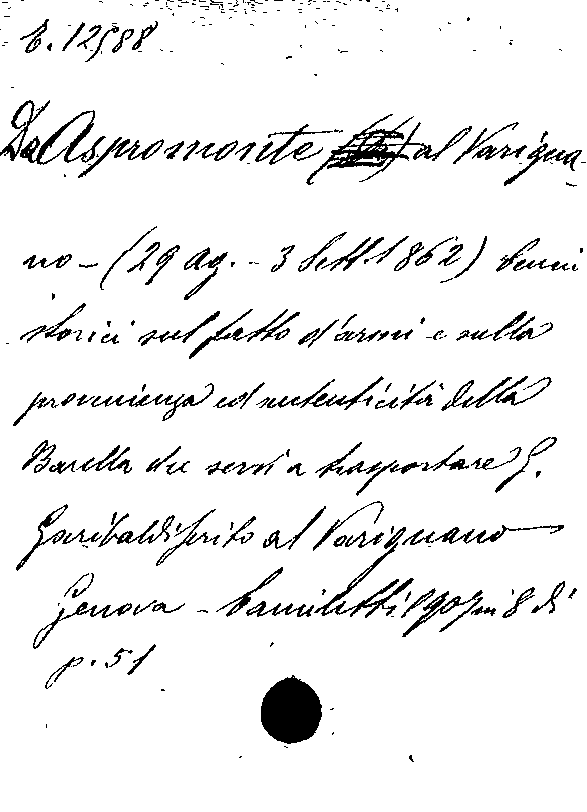 E. 12588
Da Aspromonte al Varigna
no - (29 Ag. - 3 Sett. 1862) Cenni
storici sul fatto d'armi e sulla
provenienza ed autenticità della
Barella che servì a trasportare G.
Garibaldi ferito al Varignano
Genova - 1907 in 8 di
p. 51